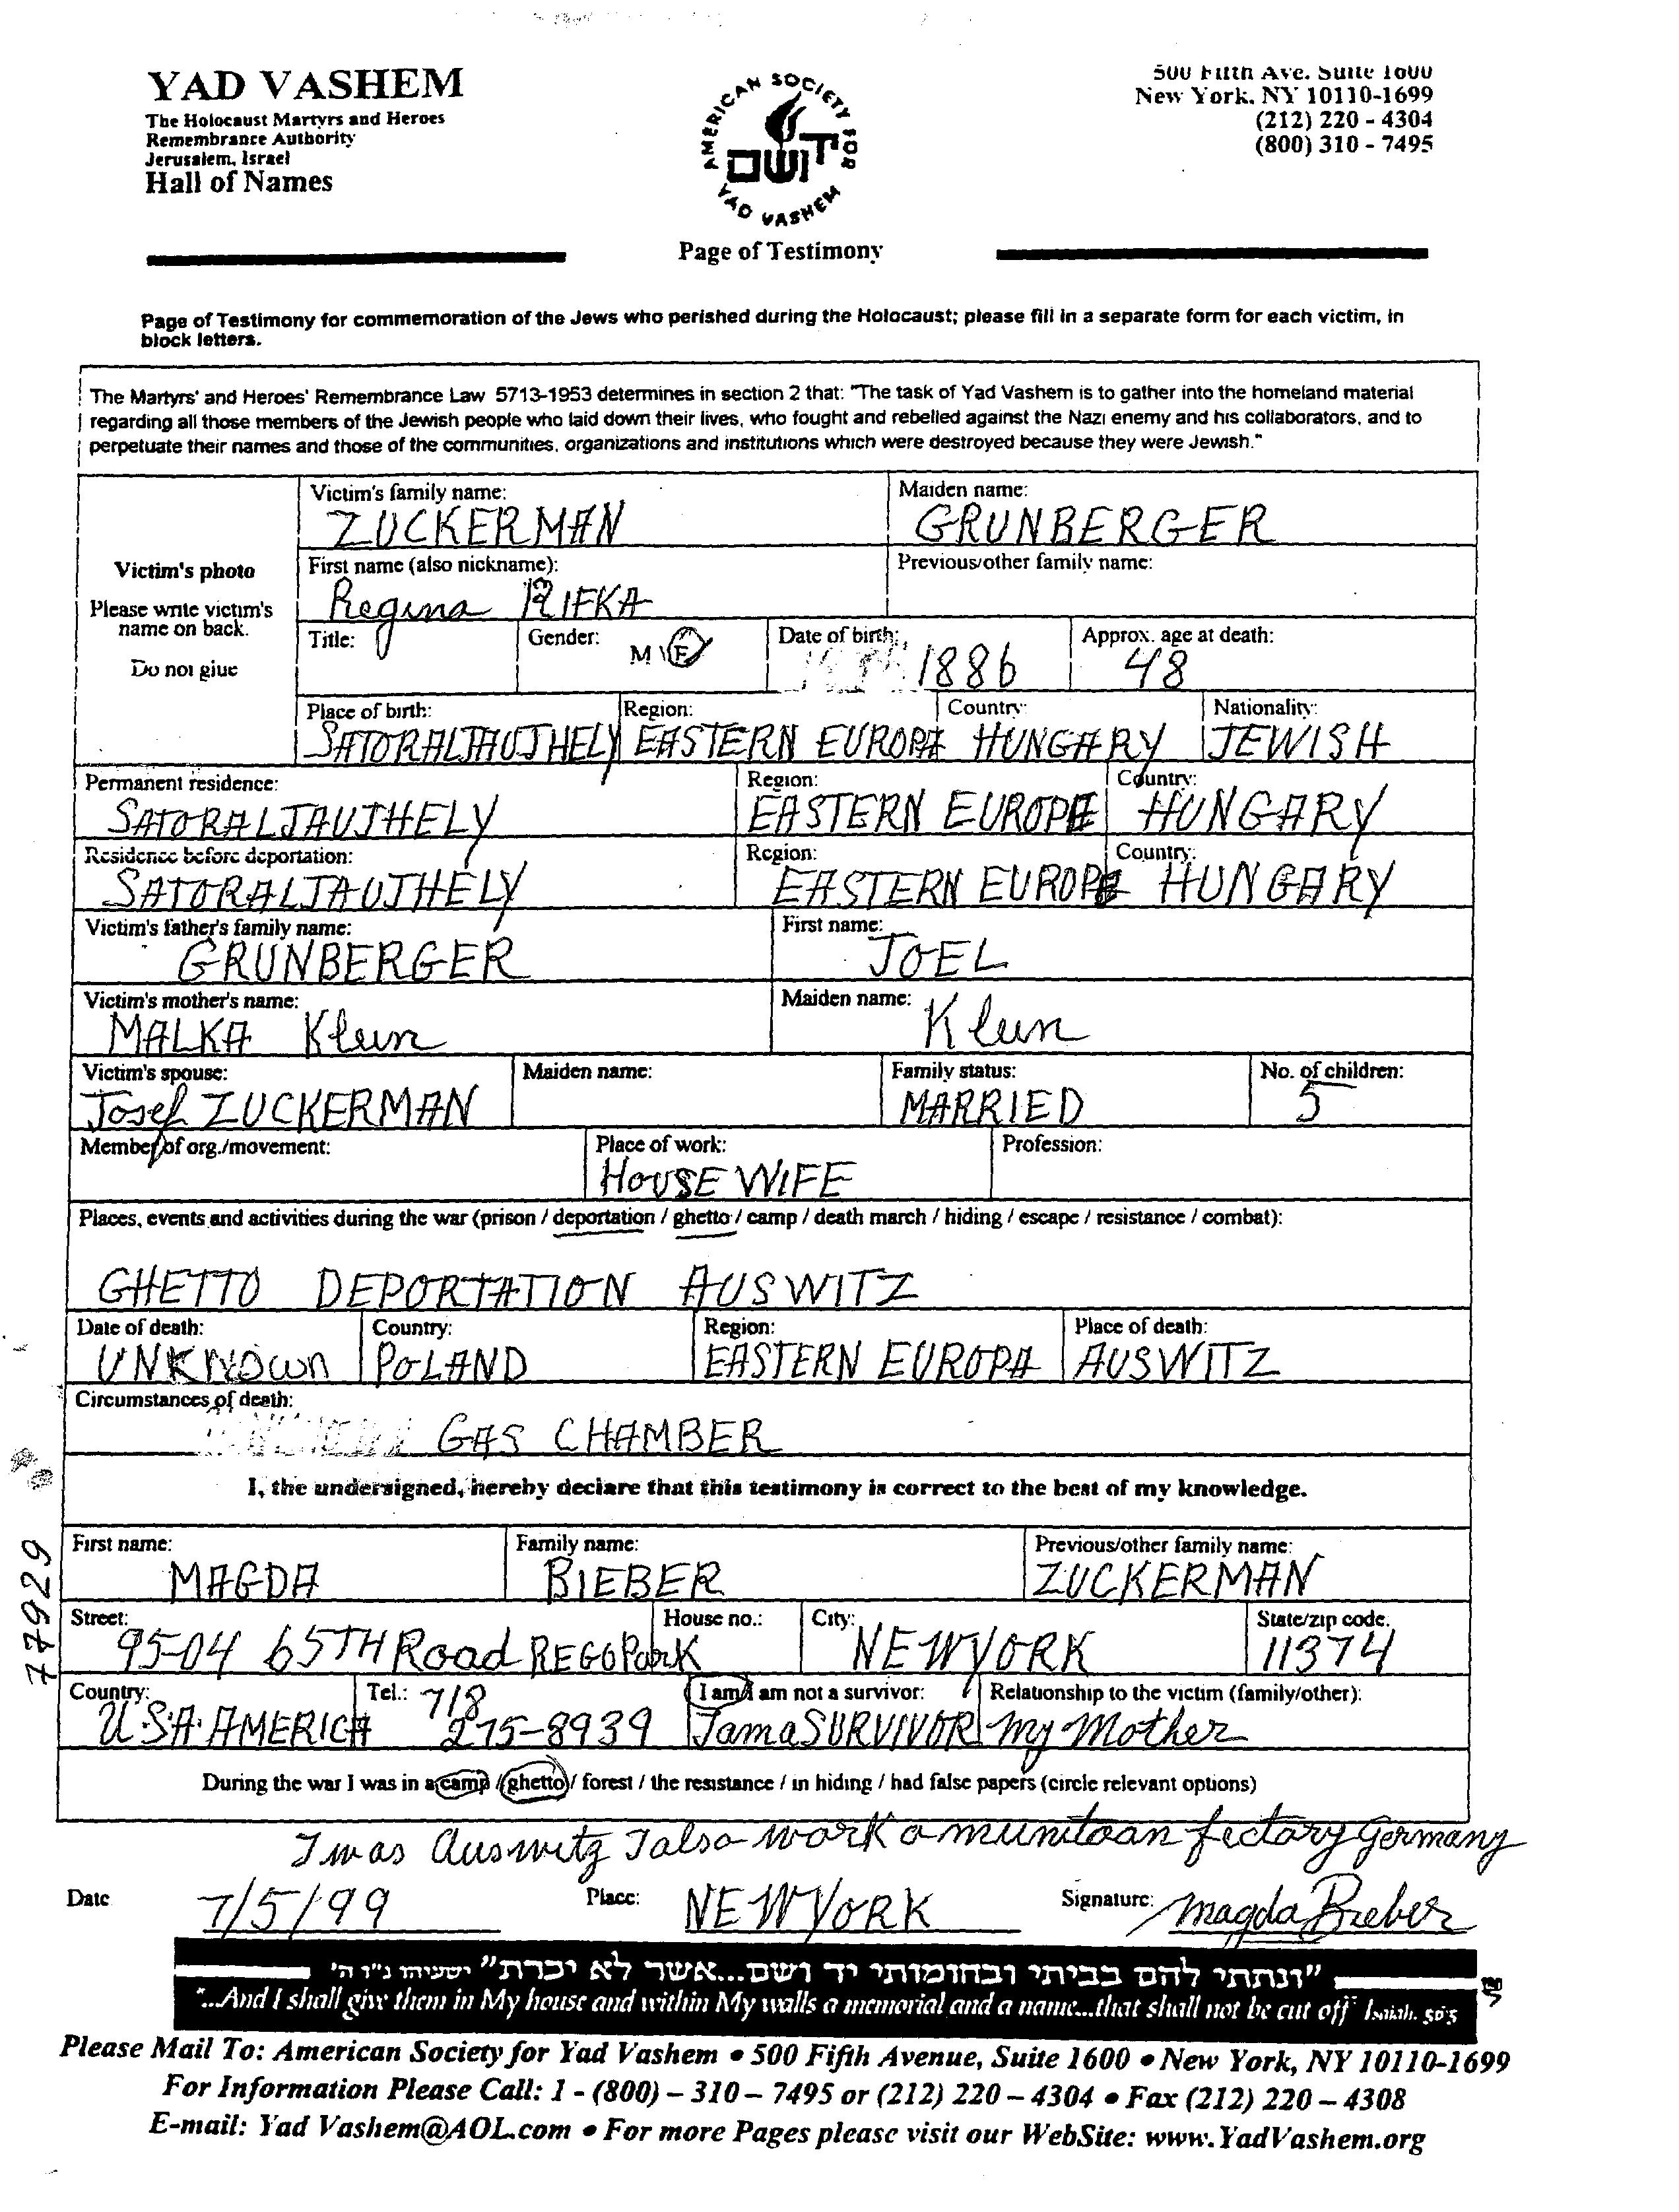 YAD VASHEM
The Holocaust Martyrs and Heroes
Remembrance Authority
Jerusalem, Israel
Hall of Names
AMERICAN SOCIETY FOR
יד ושם
YAD VASHEM
Page of Testimony
500 Fifth Ave. Suite 1600
New York, NY 10110-1699
(212) 220 - 4304
(800) 310 - 7495
Page of Testimony for commemoration of the Jews who perished during the Holocaust; please fill in a separate form for each victim, in
block letters.
The Martyrs' and Heroes' Remembrance Law 5713-1953 determines in section 2 that: "The task of Yad Vashem is to gather into the homeland material
regarding all those members of the Jewish people who laid down their lives, who fought and rebelled against the Nazi enemy and his collaborators, and to
perpetuate their names and those of the communities, organizations and institutions which were destroyed because they were Jewish."
Victim's photo
Please write victim's
name on back.
Do not glue
Victim's family name: Maiden name:
ZUCKERMAN GRUNBERGER
First name (also nickname): Previous/other family name:
Regina RIFKA
Title: Gender: M \ F Date of birth: 1886 Approx. age at death: 48
Place of birth: Region: Country: Nationality:
SATORALJAUJHELY EASTERN EUROPA HUNGARY JEWISH
Permanent residence: Region: Country:
SATORALJAUJHELY EASTERN EUROPE HUNGARY
Residence before deportation: Region: Country:
SATORALJAUJHELY EASTERN EUROPE HUNGARY
Victim's father's family name: First name:
GRUNBERGER JOEL
Victim's mother's name: Maiden name:
MALKA Klein Klein
Victim's spouse: Maiden name: Family status: No. of children:
Josef ZUCKERMAN MARRIED 5
Member of org./movement: Place of work: Profession:
HOUSE WIFE
Places, events and activities during the war (prison / deportation / ghetto / camp / death march / hiding / escape / resistance / combat):
GHETTO DEPORTATION AUSWITZ
Date of death: Country: Region: Place of death:
UNKNOWN POLAND EASTERN EUROPA AUSWITZ
Circumstances of death:
GAS CHAMBER
I, the undersigned, hereby declare that this testimony is correct to the best of my knowledge.
First name: Family name: Previous/other family name:
MAGDA BIEBER ZUCKERMAN
Street: House no.: City: State/zip code:
95-04 65TH Road REGO Park NEW YORK 11374
Country: Tel.: I am/I am not a survivor: Relationship to the victim (family/other):
U.S.A. AMERICA 718 275-8939 I am a SURVIVOR My Mother
During the war I was in a camp / ghetto / forest / the resistance / in hiding / had false papers (circle relevant options)
I was Auswitz I also work a munitoan fectory Germany
Date 7/5/99 Place: NEW YORK Signature: Magda Bieber
77929
"ונתתי להם בביתי ובחומותי יד ושם...אשר לא יכרת" ישעיהו נ"ו ה'
"...And I shall give them in My house and within My walls a memorial and a name...that shall not be cut off" Isaiah. 56:5
Please Mail To: American Society for Yad Vashem • 500 Fifth Avenue, Suite 1600 • New York, NY 10110-1699
For Information Please Call: 1 - (800) – 310 – 7495 or (212) 220 – 4304 • Fax (212) 220 – 4308
E-mail: Yad Vashem@AOL.com • For more Pages please visit our WebSite: www.YadVashem.org